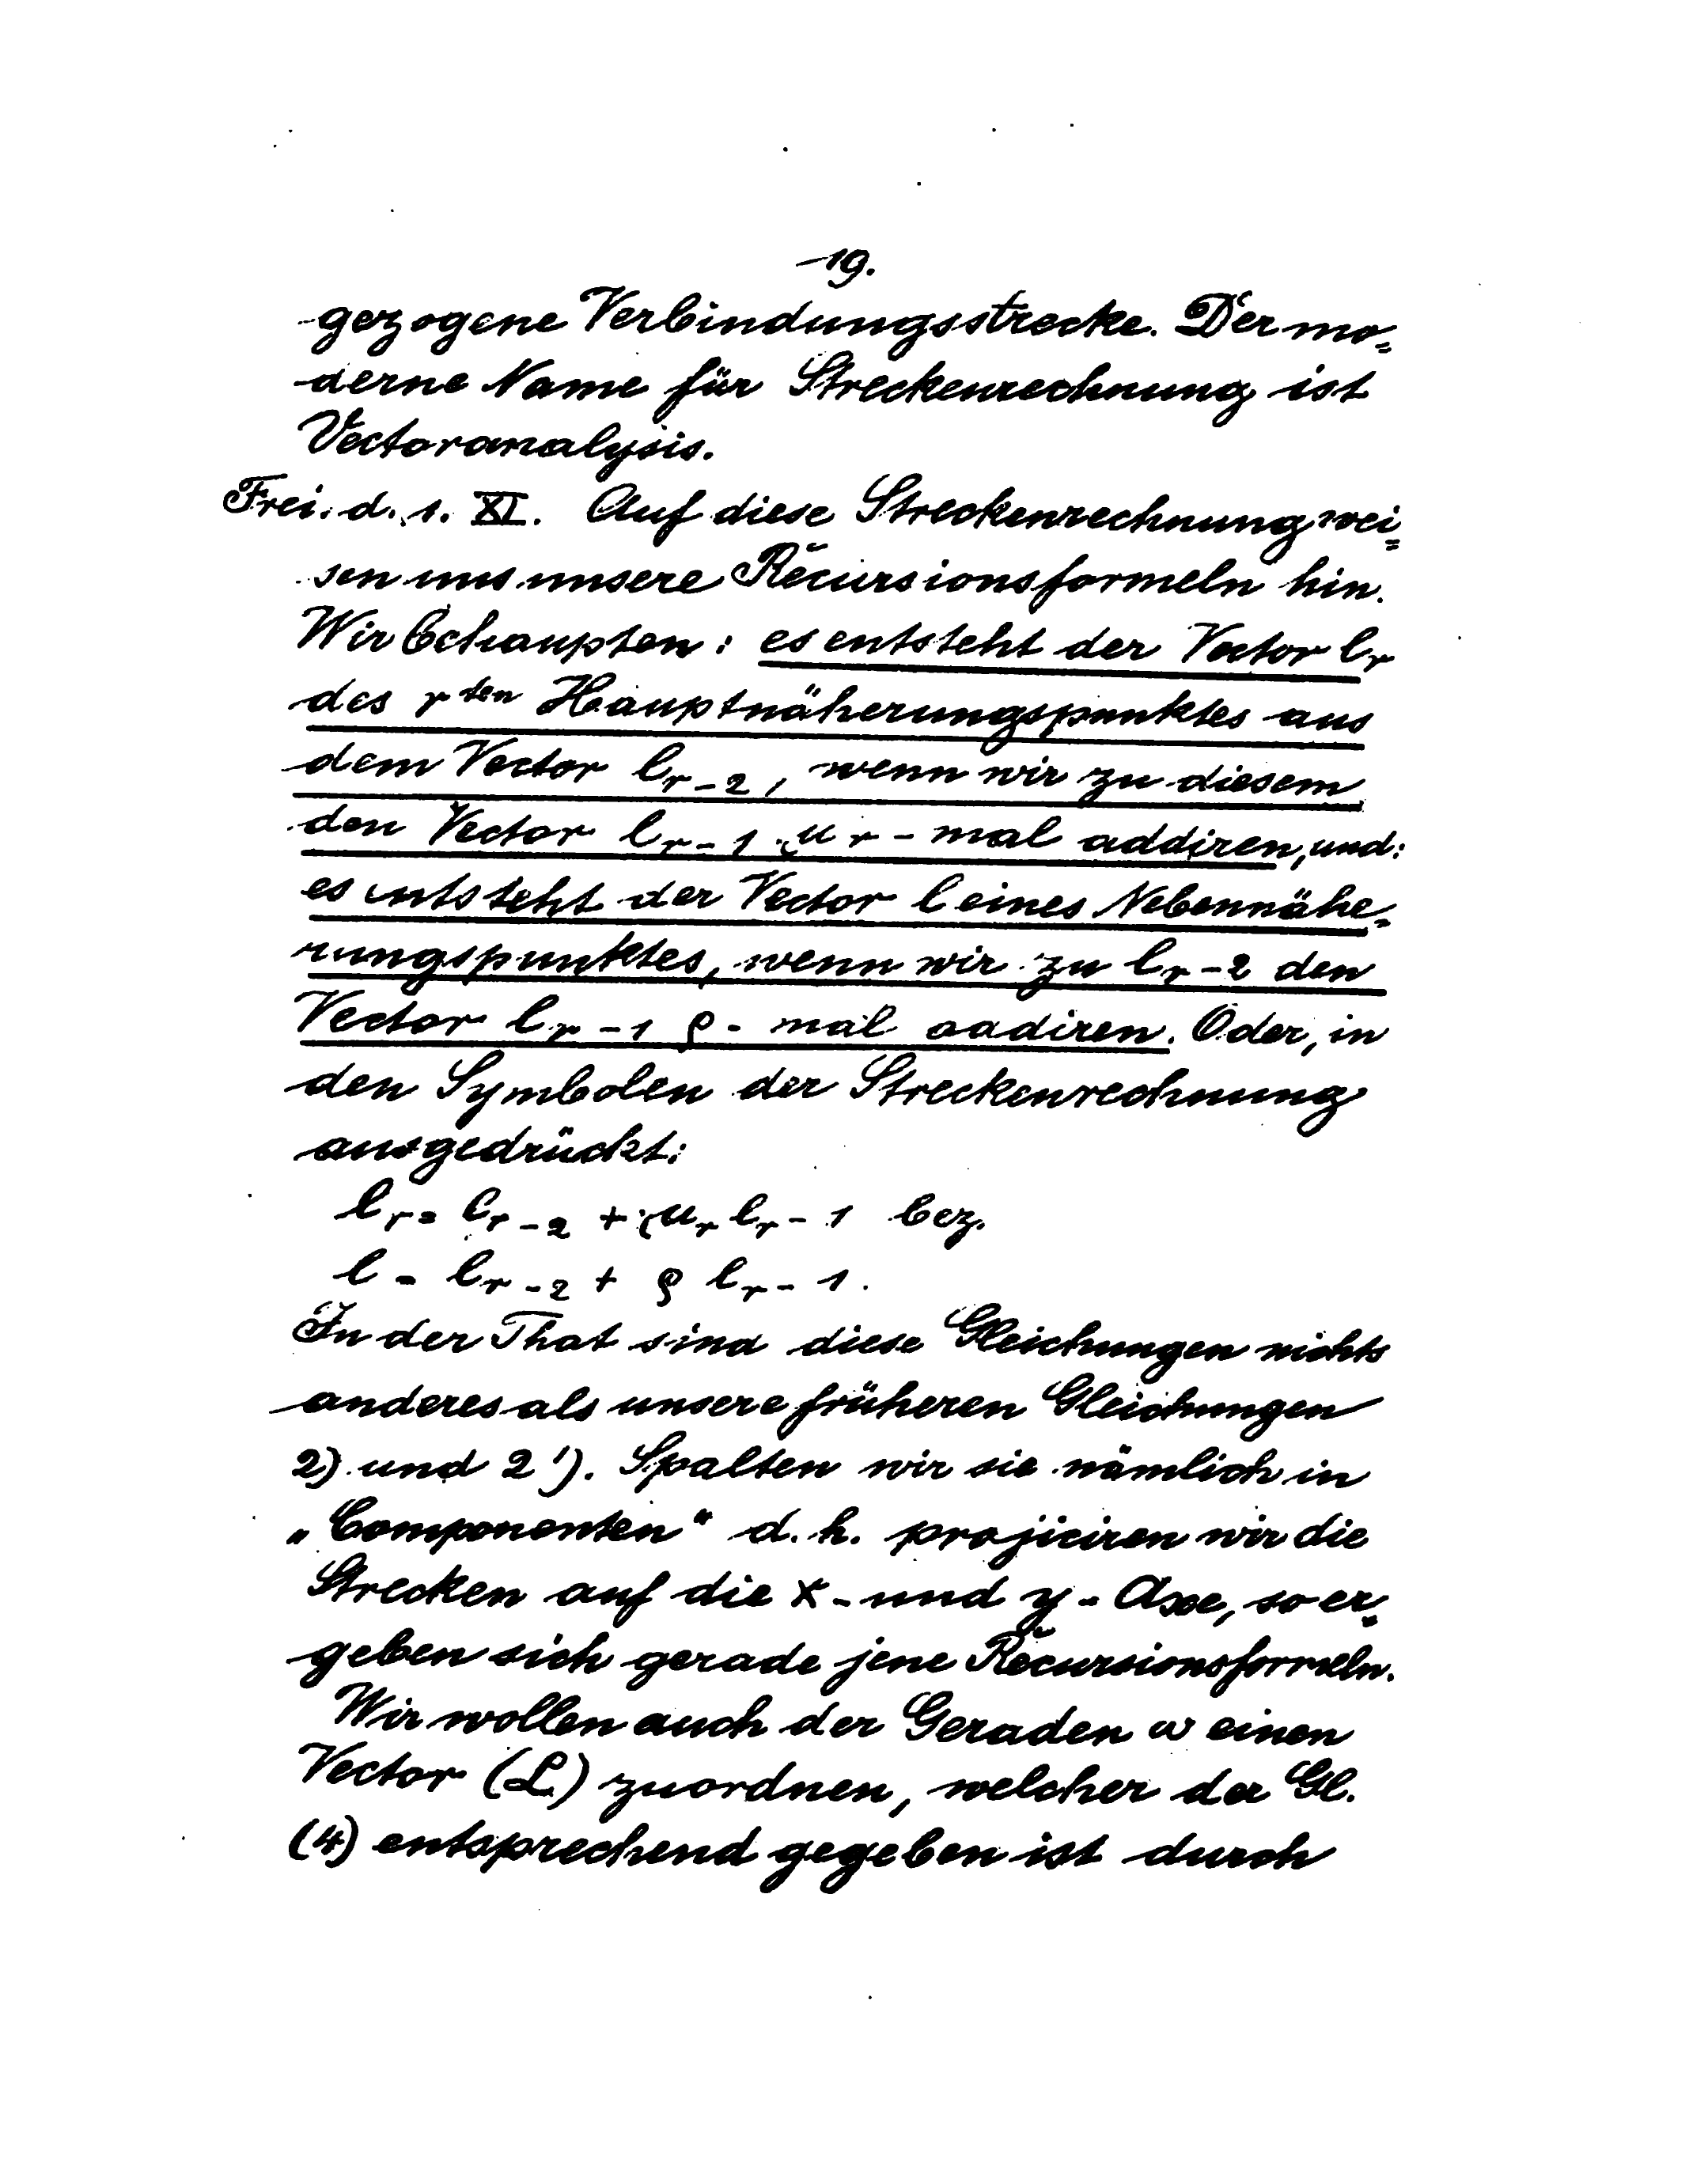 19.
gezogene Verbindungsstrecke. Der mo=
derne Name für Streckenrechnung ist
Vectoranalysis.
Frei. d. 1. XI. Auf diese Streckenrechnung wei=
sen uns unsere Recursionsformeln hin.
Wir behaupten: es entsteht der Vector l_r
des r^ten Hauptnäherungspunktes aus
dem Vector l_{r-2}, wenn wir zu diesem
den Vector l_{r-1} μ_r-mal addiren, und:
es entsteht der Vector l eines Nebennähe=
rungspunktes, wenn wir zu l_{r-2} den
Vector l_{r-1} ρ-mal aadiren. Oder, in
den Symbolen der Streckenrechnung
ausgedrückt:
l_r = l_{r-2} + μ_r l_{r-1} bez.
l = l_{r-2} + ρ l_{r-1}.
In der That sind diese Gleichungen nichts
anderes als unsere früheren Gleichungen
2) und 2'). Spalten wir sie nämlich in
„Componenten" d. h. projiciren wir die
Strecken auf die x- und y-Axe, so er=
geben sich gerade jene Recursionsformeln.
Wir wollen auch der Geraden ω einen
Vector (L) zuordnen, welcher der Gl.
(4) entsprechend gegeben ist durch